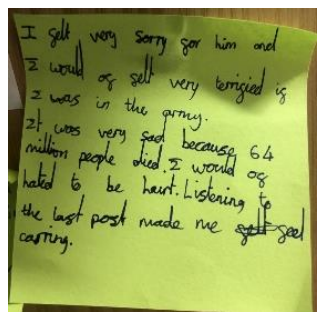 I felt very sorry for him and
I would of felt very terrified if
I was in the army.
It was very sad because 64
million people died. I would of
hated to be hurt. Listening to
the last post made me felt feel
carring.